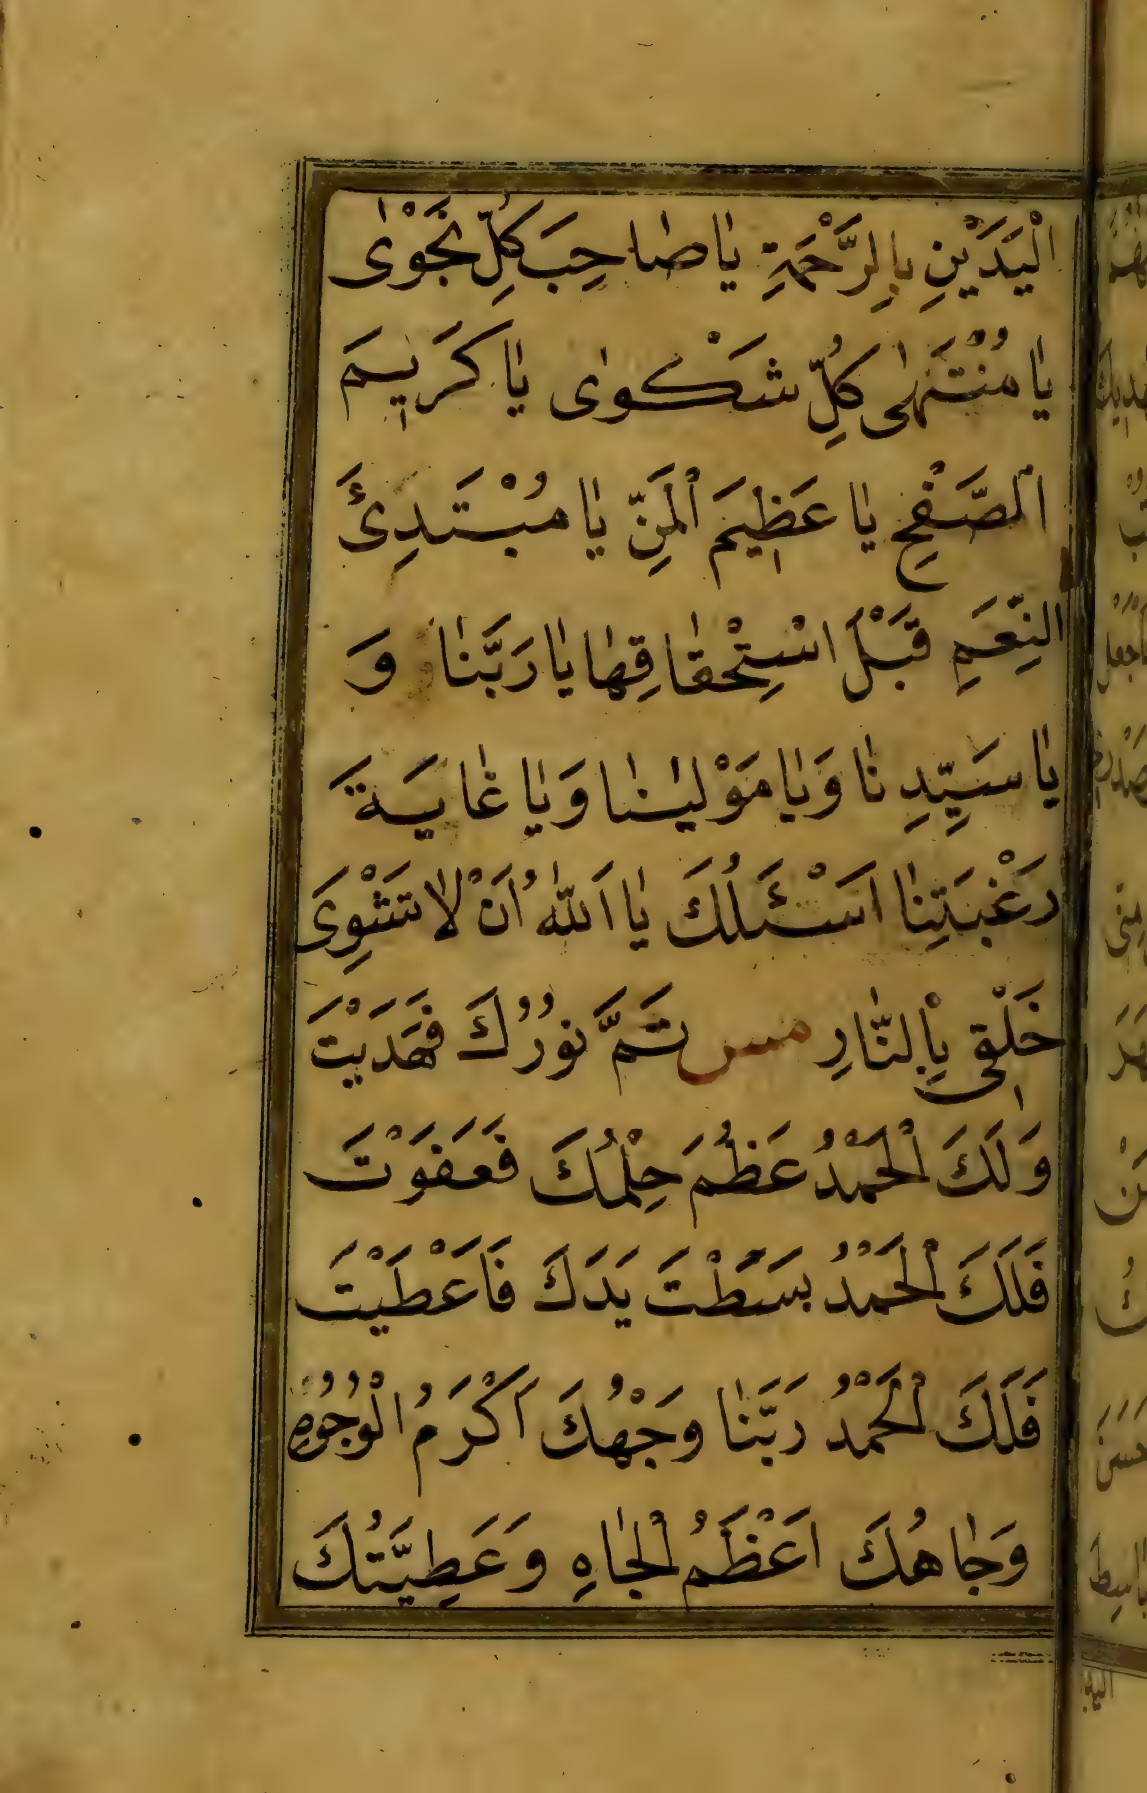 الْيَدَيْنِ بِالرَّحْمَةِ يٰا صٰاحِبَ كُلِّ نَجْوٰى
يٰا مُنْتَهٰى كُلِّ شَكْوٰى يٰا كَرِيمَ
الصَّفْحِ يٰا عَظِيمَ الْمَنِّ يٰا مُبْتَدِئَ
النِّعَمِ قَبْلَ اسْتِحْقٰاقِهٰا يٰا رَبَّنٰا وَ
يٰا سَيِّدِنٰا وَيٰا مَوْلَيٰنٰا وَيٰا غٰايَةَ
رَغْبَتِنٰا اَسْئَلُكَ يٰا اَللّٰهُ اَنْ لٰا تَشْوِىَ
خَلْقِى بِالنّٰارِ مس تَمَّ نُورُكَ فَهَدَيْتَ
وَلَكَ الْحَمْدُ عَظُمَ حِلْمُكَ فَعَفَوْتَ
فَلَكَ الْحَمْدُ بَسَطْتَ يَدَكَ فَاَعْطَيْتَ
فَلَكَ الْحَمْدُ رَبَّنٰا وَجْهُكَ اَكْرَمُ الْوُجُوهِ
وَجٰاهُكَ اَعْظَمُ الْجٰاهِ وَعَطِيَّتُكَ